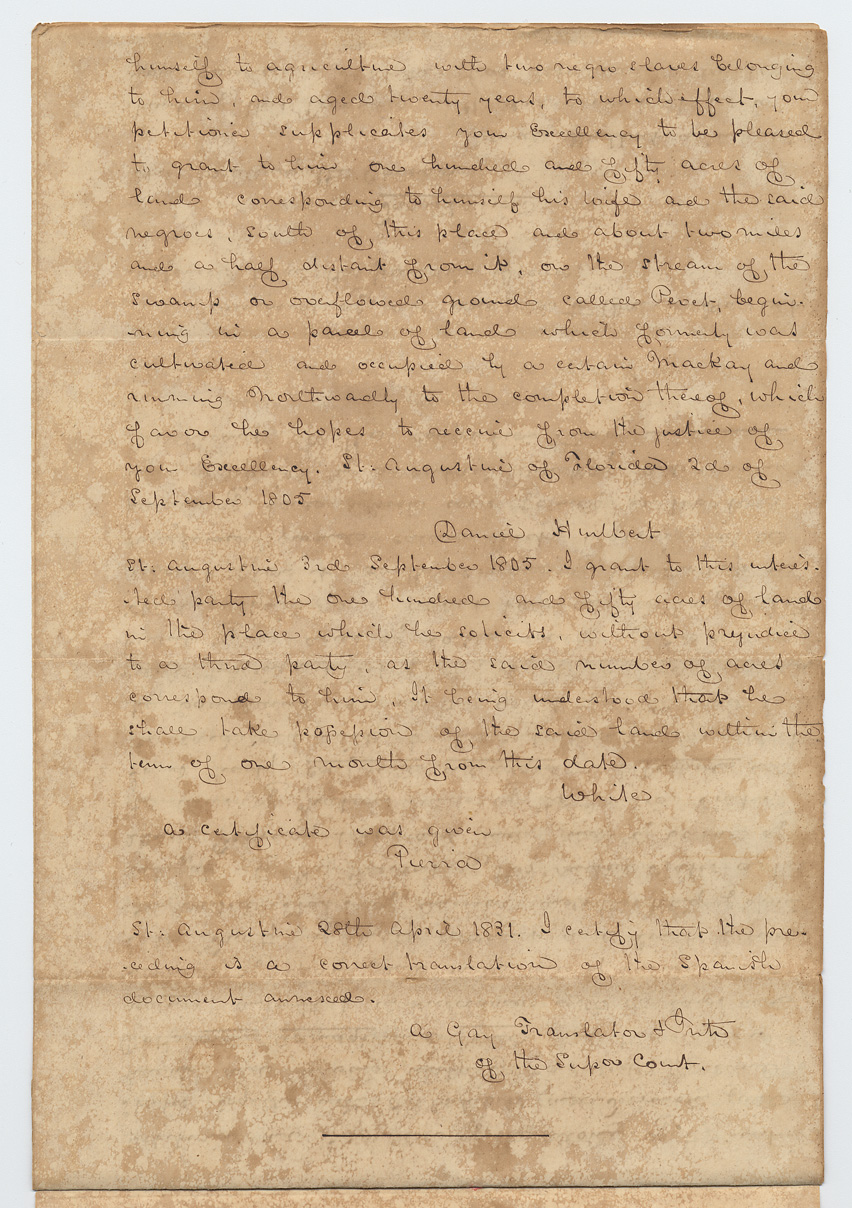 himself to agriculture with two negro slaves belonging
to him, and aged twenty years, to which effect, your
petitioner supplicates your Excellency to be pleased
to grant to him one hundred and fifty acres of
land corresponding to himself his wife and the said
negroes, South of this place and about two miles
and a half distant from it, on the stream of the
Swamp or overflowed ground called Pevet, begin-
-ning in a parcel of land which formerly was
cultivated and occupied by a certain Mackay and
running Northwardly to the completion thereof, which
favor he hopes to receive from the justice of
your Excellency. St: Augustine of Florida 2d of
September 1805
Daniel Hurlbert
St: Augustine 3rd September 1805. I grant to this interes-
-ted party the one hundred and fifty acres of land
in the place which he solicits, without prejudice
to a third party, as the said number of acres
correspond to him, It being understood that he
shall take possession of the said land within the
term of one month from this date.
White
A certificate was given
Pierra
St: Augustine 28th April 1831. I certify that the pre-
-ceding is a correct translation of the Spanish
document annexed.
A Gay Translator & Intr
of the Supor Court.